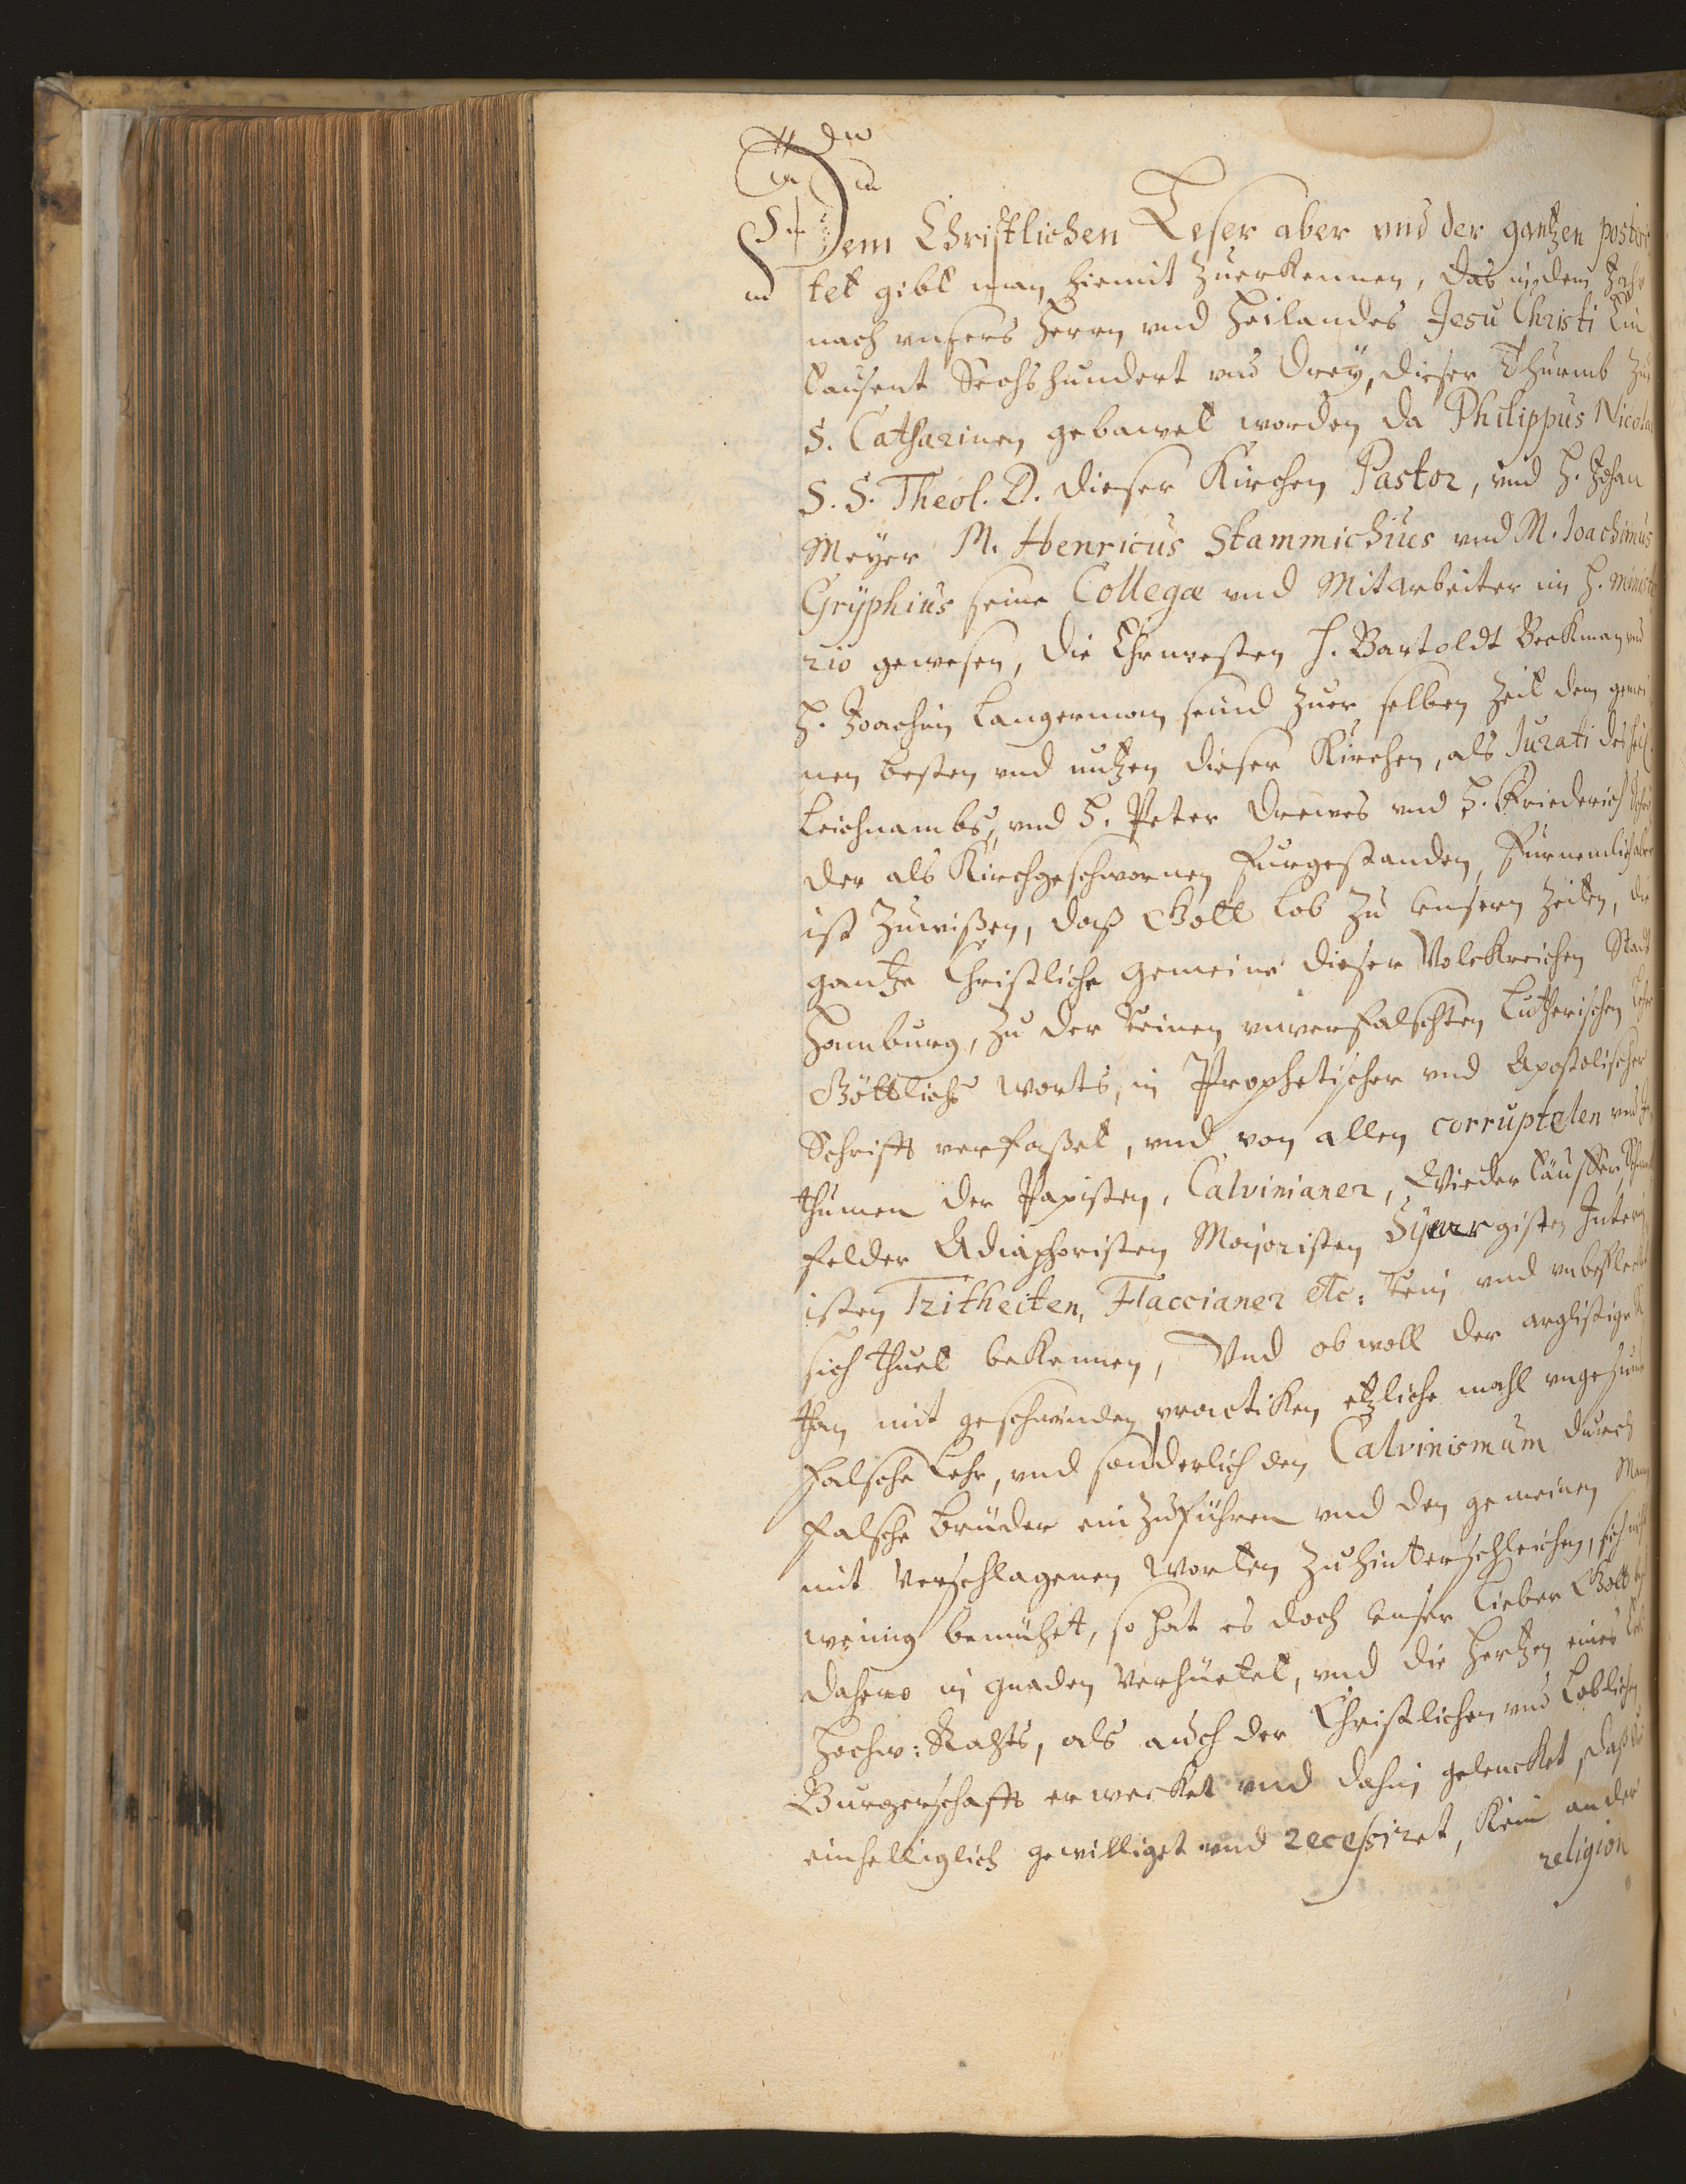 Dem Christlichen Leser aber vnd der gantzen poste
tet gibt man hiemit zuerkennen, das in dem Jahr
nach vnsers Herrn vnd Heilandes Jesu Christi Ein
tausent Sechshundert vnd drey, dieser Thurmb zu
S. Catharinen gebawet worden, da Philippus Nicolai
S. S. Theol. D. dieser Kirchen Pastor, vnd H. Johan
Meyer M. Henricus Stammichius vnd M. Joachimus
Gryphius seine Collegæ vnd Mitarbeiter im H. ministe
rio gewesen, die Ehrnvesten H. Bartoldt Beckman vnd
H. Joachim Langerman seind zuer selben zeit dem gemei
nen besten vnd nutzen dieser Kirchen, als Jurati des heil.
Leichnambs, vnd H. Peter Drewes vnd H. Friederich
der als Kirchgeschwornen furgestanden, furnemlich aber
ist zuwißen, daß Gott lob zu vnsern zeiten, die
gantze Christliche gemeine dieser Volckreichen Stadt
Hamburg, zu der reinen vnverfalschten Lutherischen Lehr
Göttlichs worts, in Prophetischer vnd Apostolischer
Schrifft verfaßet, vnd von allen corruptelen vnd Irr
thumen der Papisten, Calvinianer, Wiedertäuffer, Schwenck
felder Adiaphoristen Majoristen Synergisten Interim
isten Tritheiten, Flaccianer etc: rein vnd vnbefleckt
sich thuet bekennen, Vnd ob woll der arglistige Sa
than mit geschwinden practiken etzliche mahl vngesunde
falsche Lehr, vnd sonderlich den Calvinismum durch
falsche brüder einzuführen vnd den gemeinen Mann
mit verschlagenen worten zuhinterschleichen, sich nicht
wenig bemühet, so hat es doch vnser lieber Gott biß
dahero in gnaden verhüetet, vnd die hertzen eines
Hochw: Rahts, als auch der Christlichen vnd Loblichen
Burgerschafft erwecket vnd dahin gelencket, daß sie
einhelliglich gewilliget vnd recessiret, kein ander
religion